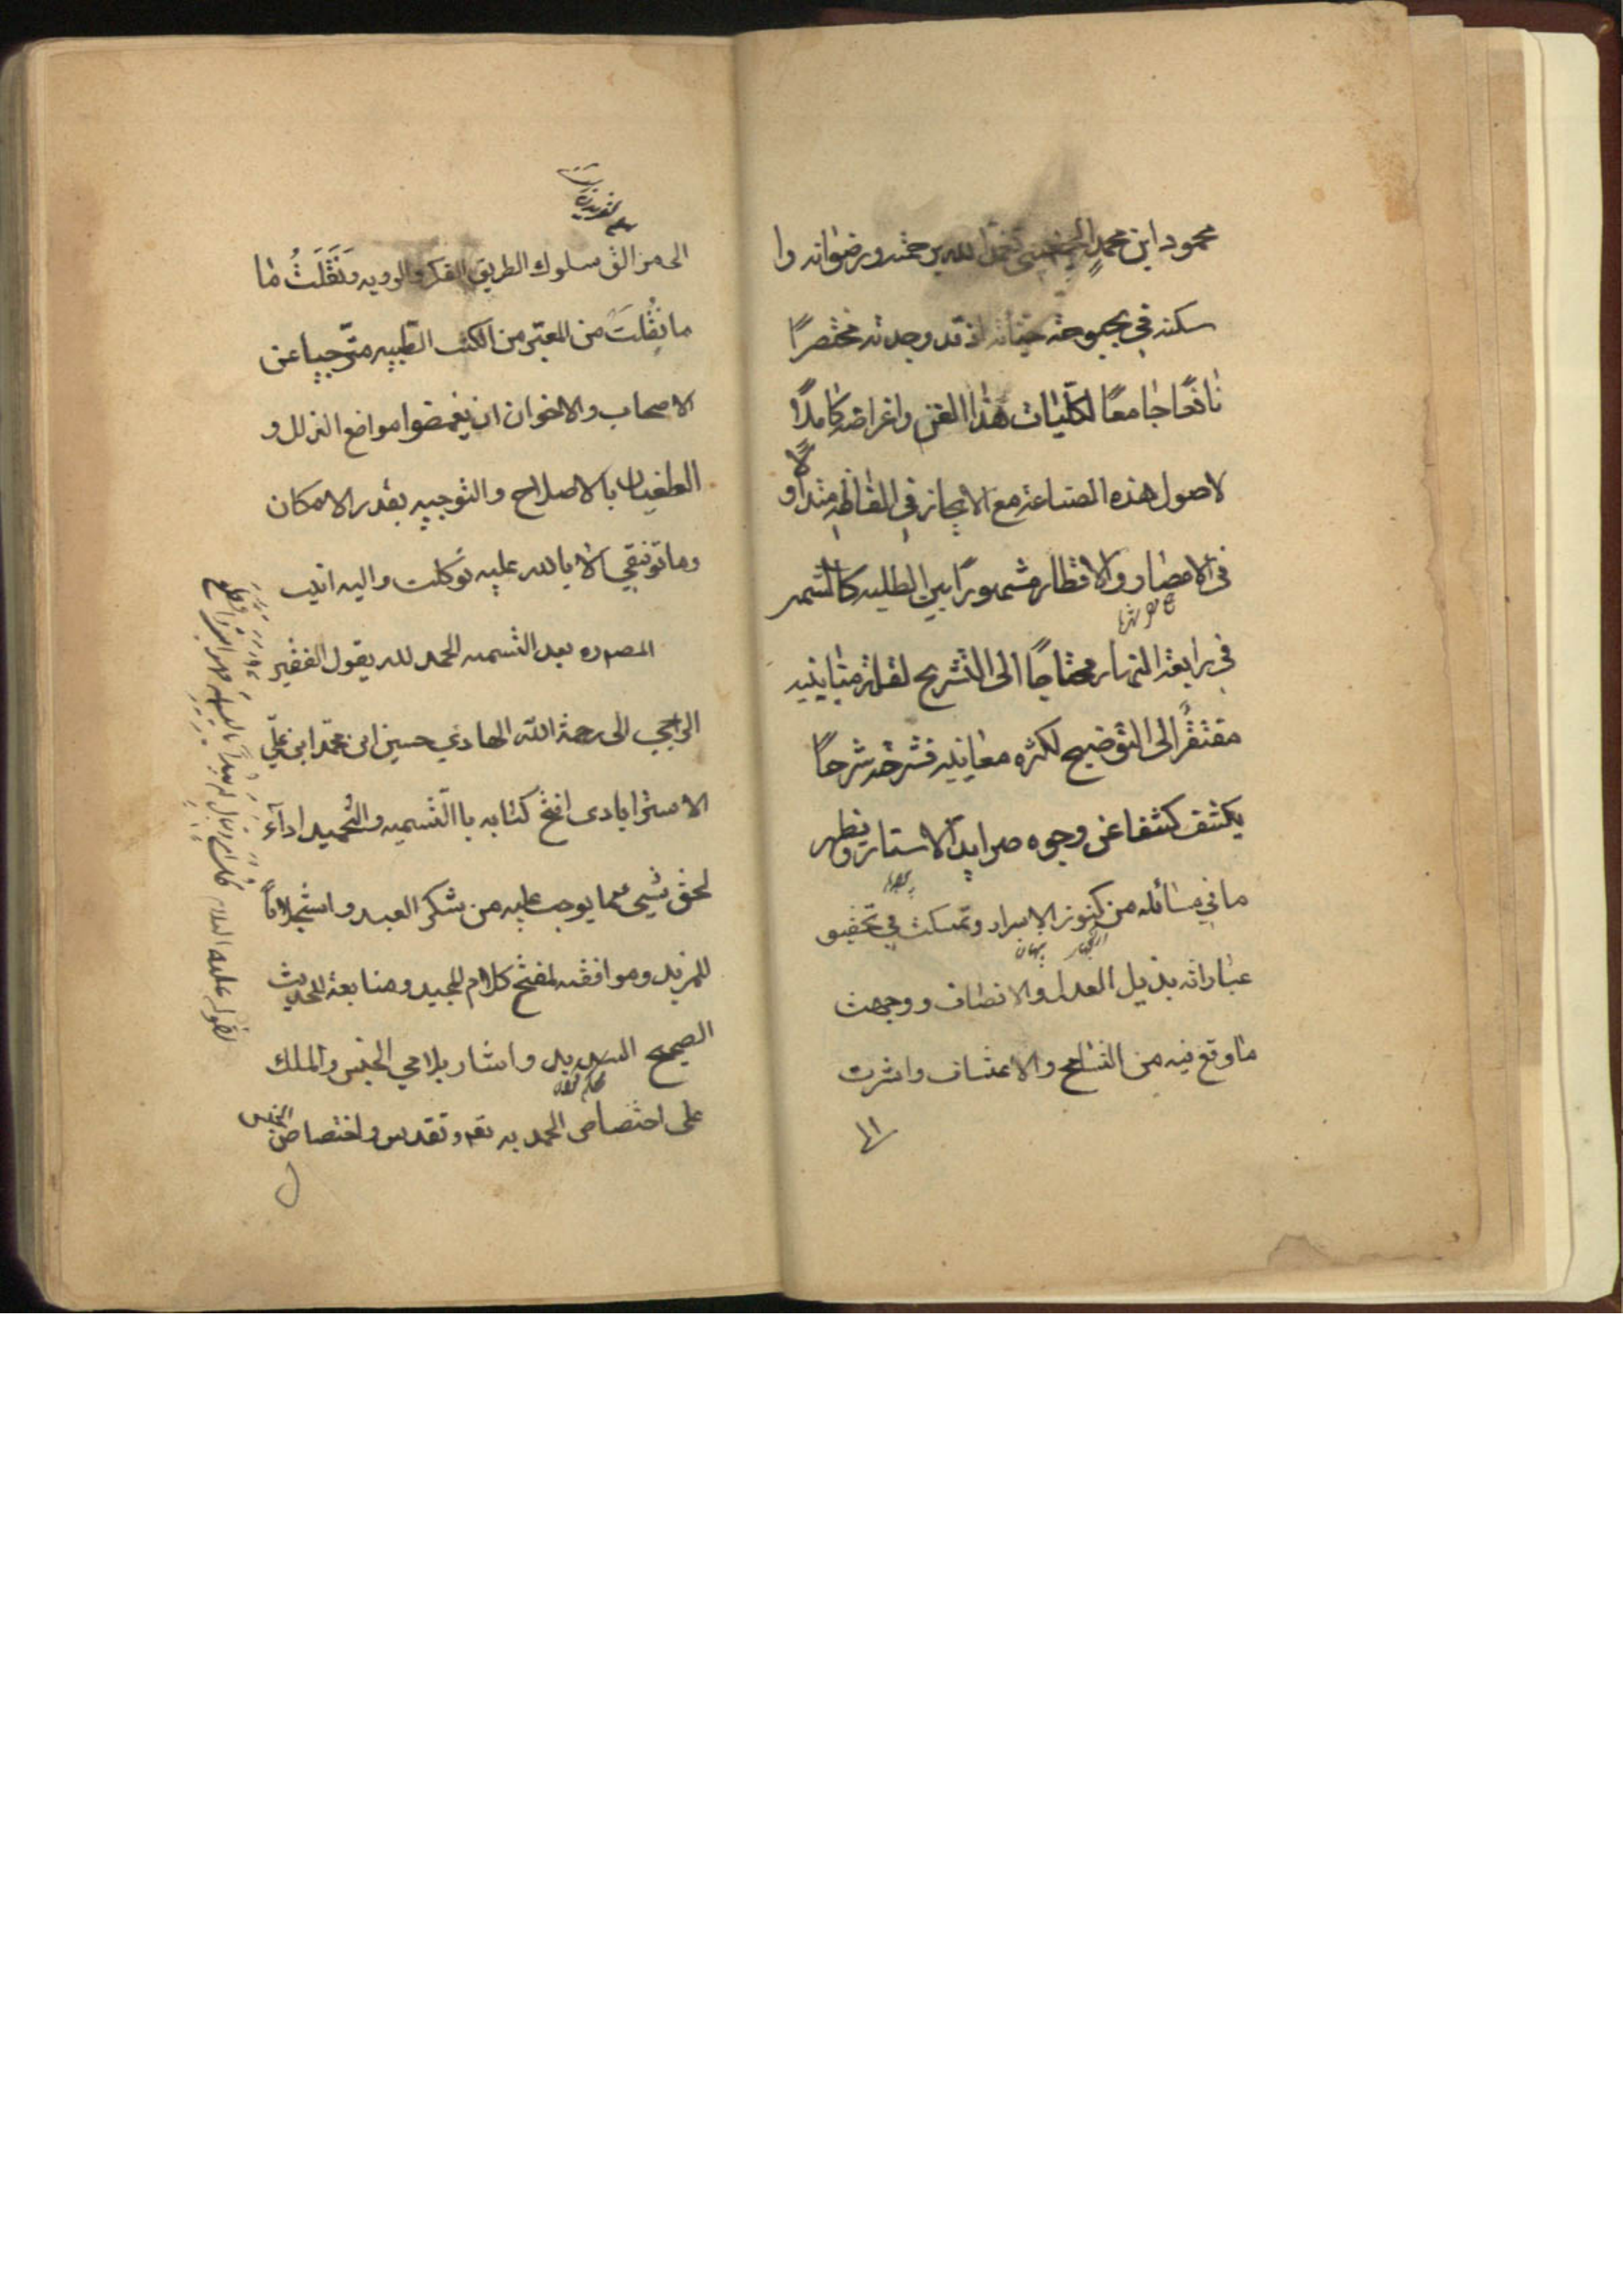 محمود ابن محمد الجغميني تغمده الله برحمته ورضوانه وا
سكنه في بحبوحة جنانه اذ قد وجدته مختصرًا
نافعًا جامعًا لكليات هذا الفن واغراضه كاملًا
لاصول هذه الصناعة مع الايجاز في الفاظه متداو
لًا
في الامصار والاقطار مشهورًا بين الطلبه كالشمس
في رابعة النهار محتاجًا الى التشريح لقلة مبانيه
مفتقرًا الى التوضيح لكثره معانيه فشرحته شرحًا
يكشف كشفا عن وجوه صرايد الاستار ويظهر
ما في مسائله من كنوز الاسرار وتمسكت في تحقيق
عباراته بذيل العدل والانصاف ووجهت
ما وقع فيه من التسامح والاعتساف واشرت
الى من الق سلوك الطريق الفكر والرويه ونقلت ما
ما نقلت من المعتبر من الكتب الطبيه مترجيا عن
الاصحاب والاخوان ان يغمضوا مواضع الزلل و
الطغيان بالاصلاح والتوجيه بقدر الامكان
وما توفيقي الا بالله عليه توكلت واليه انيب
المصدره بعد التسميه الحمد لله يقول الفقير
الراجي الى رحمة الله الهادي حسين ابن محمد ابن علي
الاسترابادى افتتح كتابه باالتسميه والتحميد اداء
لحق شيى مما يوجب عليه من شكر العبد واستجلابًا
للمزيد وموافقه لمفتتح كلام المجيد ومتابعة للحديث
الصحيح السديد واشار بلامي الجنس والملك
على اختصاص الحمد به تعم وتقدس واختصاص الجنس